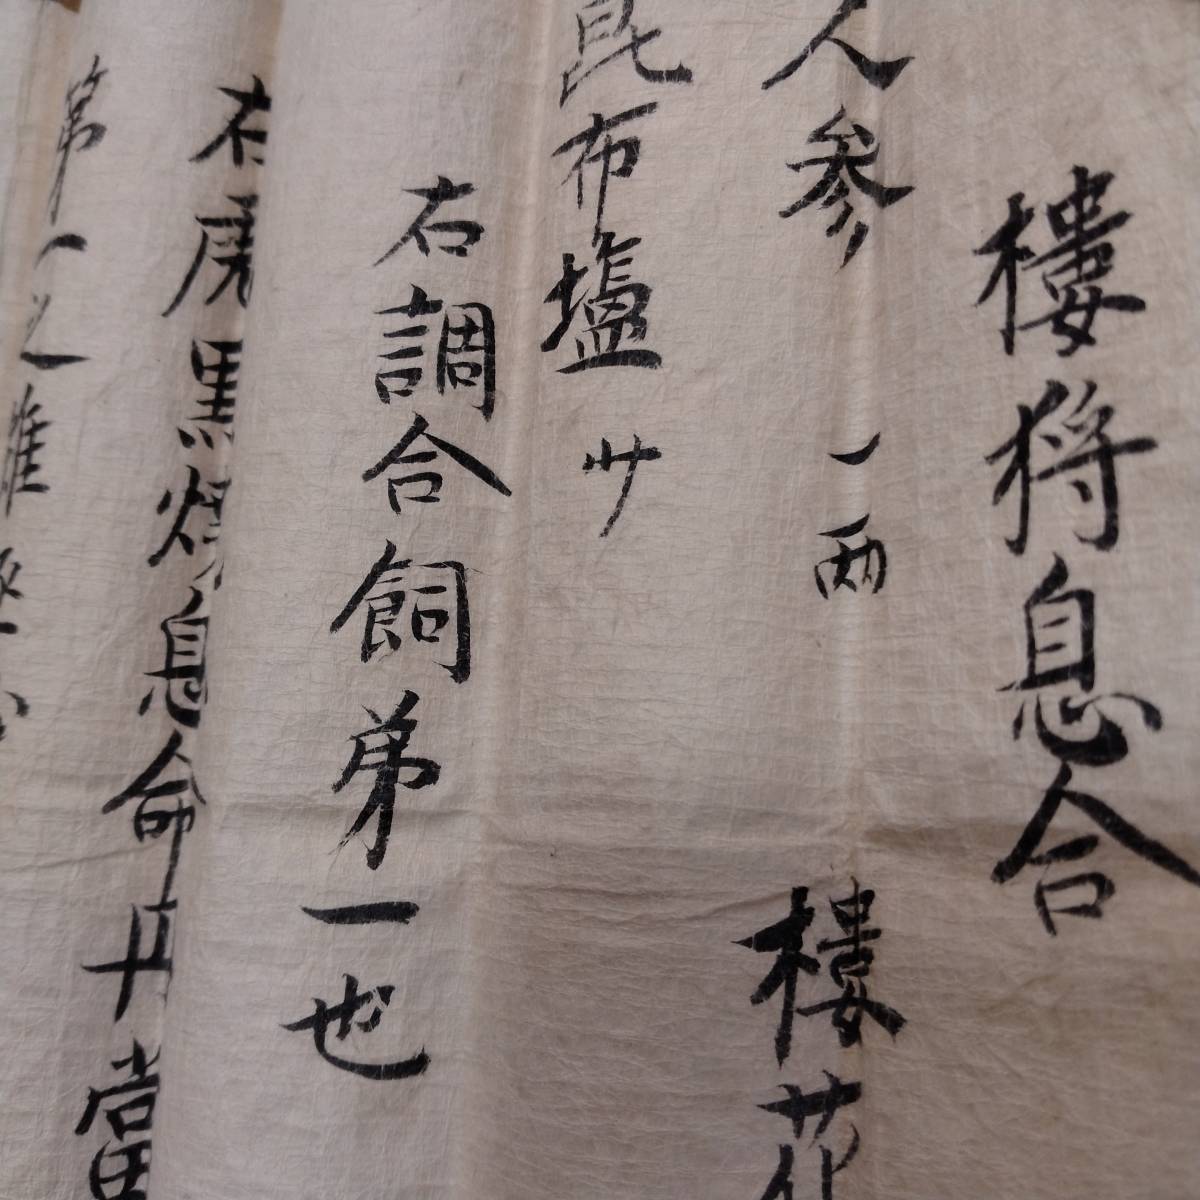 樓狩息合
人参 一両 樓花
昆布塩サ
右調合飼弟一也
右虎黒煉息命丹當
第一之雄